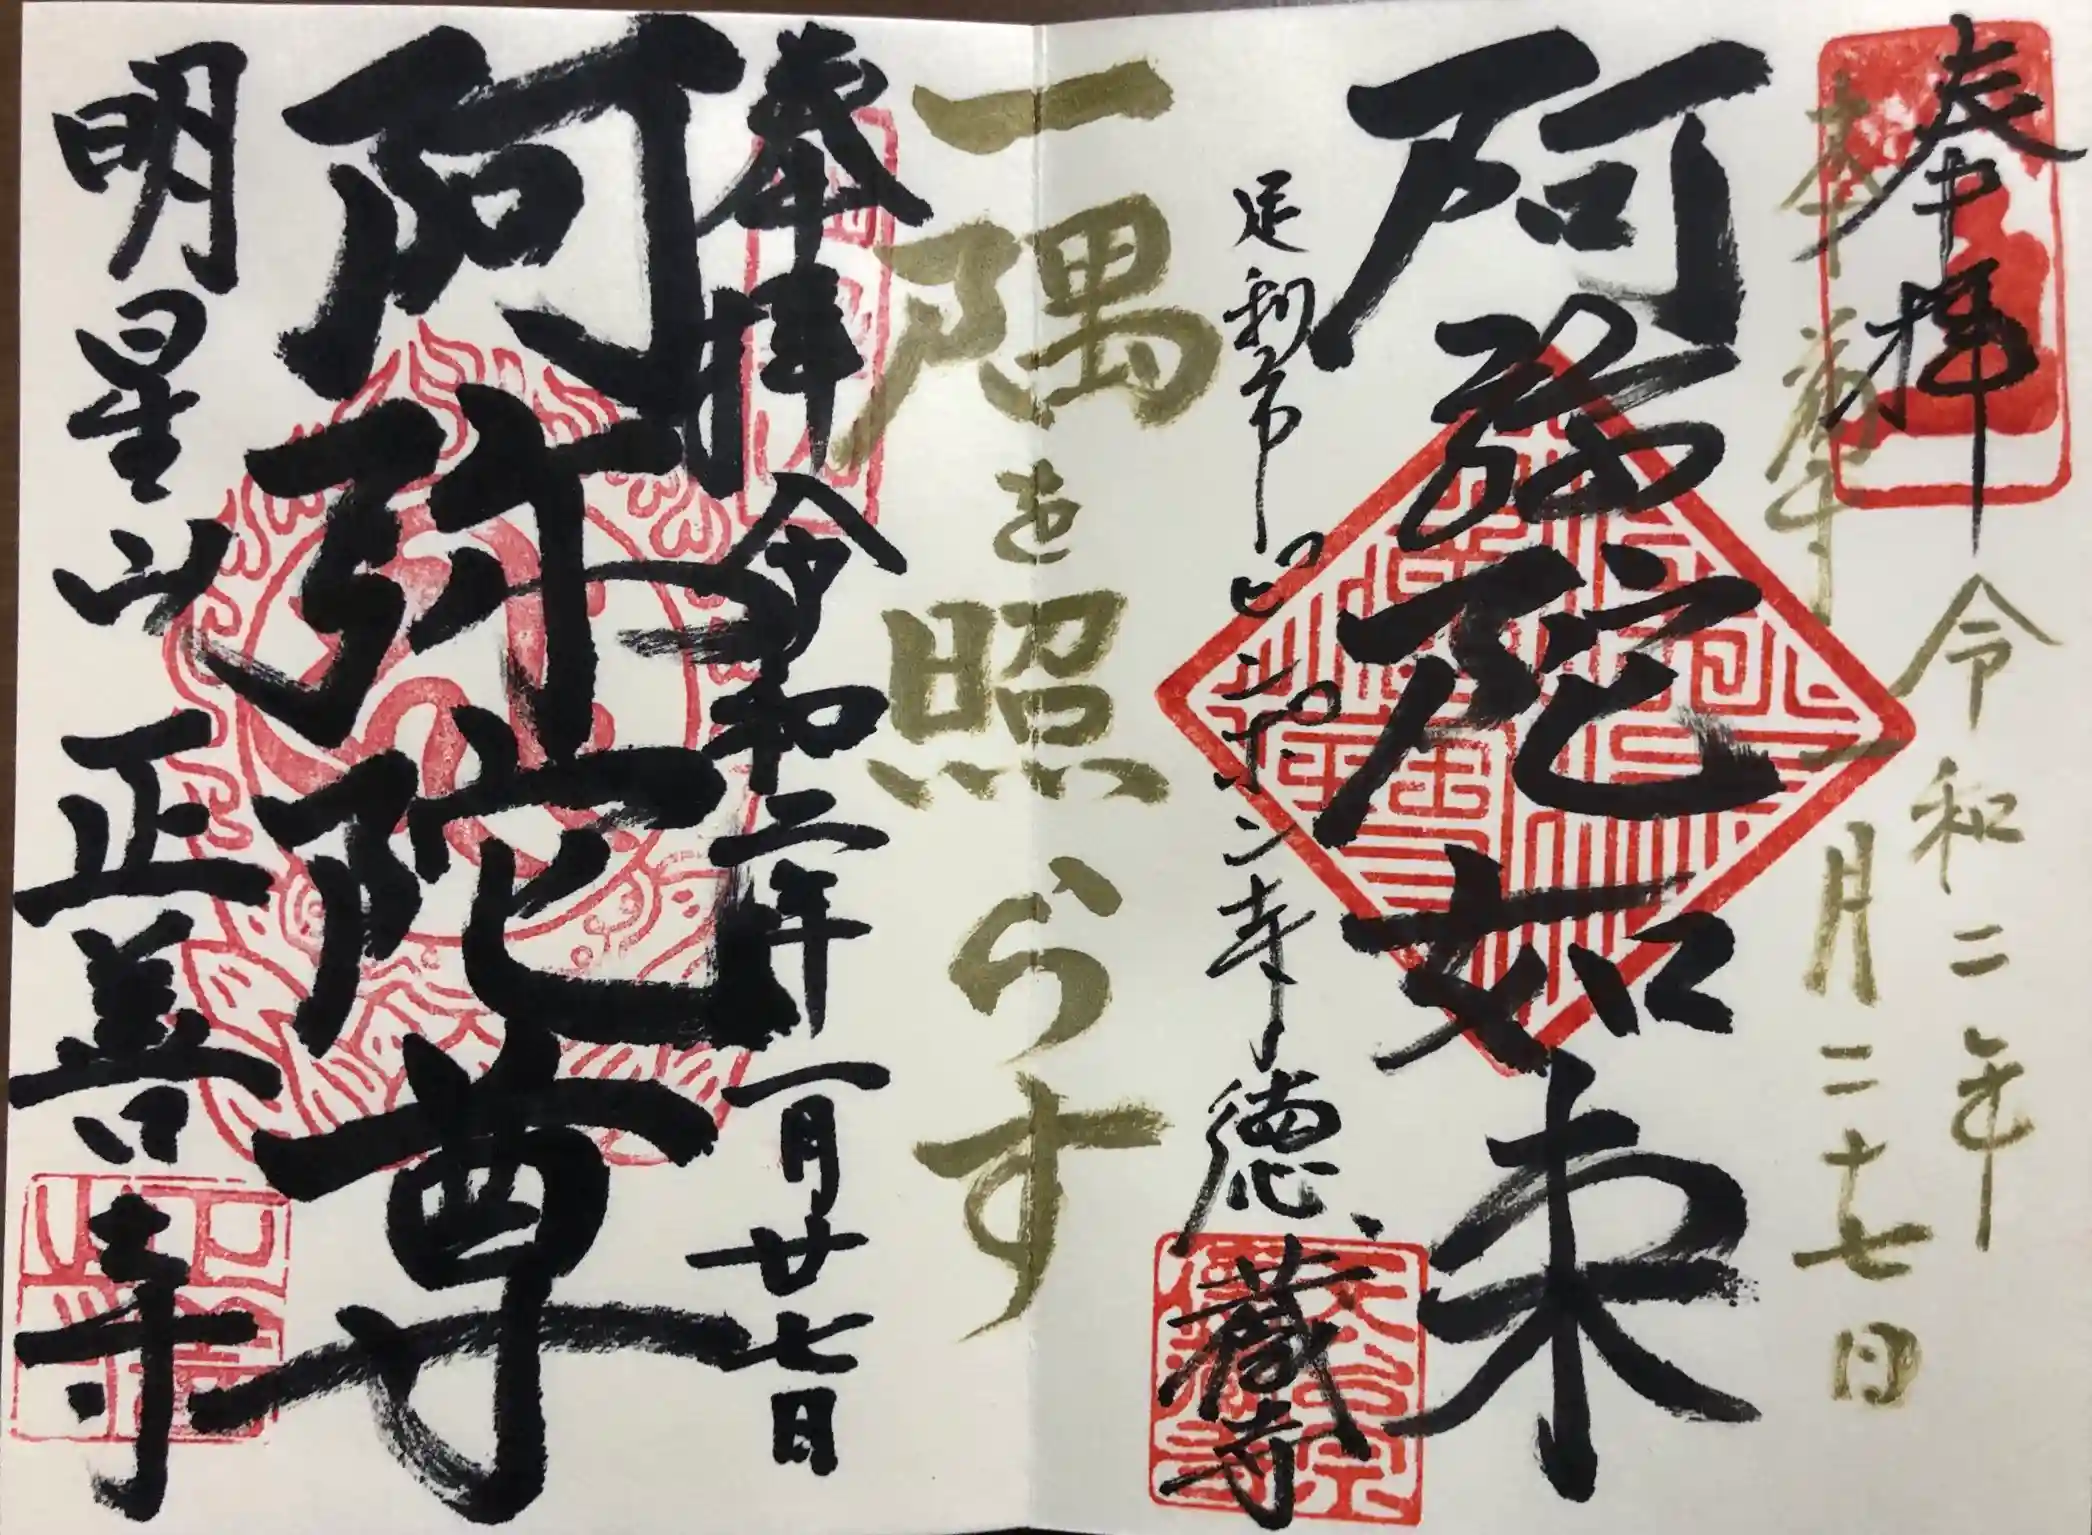 奉拝
令和二年
一月二十七日
阿弥陀如来
足利市
徳蔵寺
一隅を照らす
奉拝 令和二年一月廿七日
阿弥陀尊
明星山 正善寺